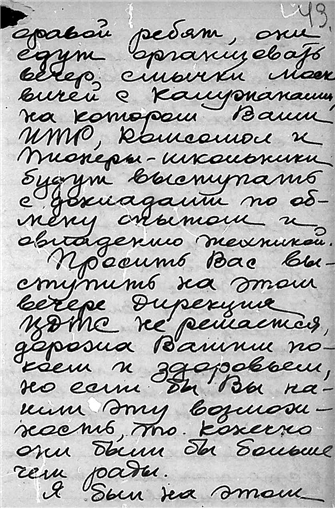 49.
оравой ребят, они
едут организовать
вечер смычки моск
вичей с Калужанами
на котором Ваши
ИТР, комсомол и
пионеры-школьники
будут выступать
с докладами по об-
мену опытом и
овладению техникой.
Просить Вас вы-
ступить на этом
вечере Дирекция
ЦДТС не решается,
дорожа Вашим по-
коем и здоровьем,
но если бы Вы на-
шли эту возмож-
ность, то конечно
они были бы больше
чем рады.
Я был на этом